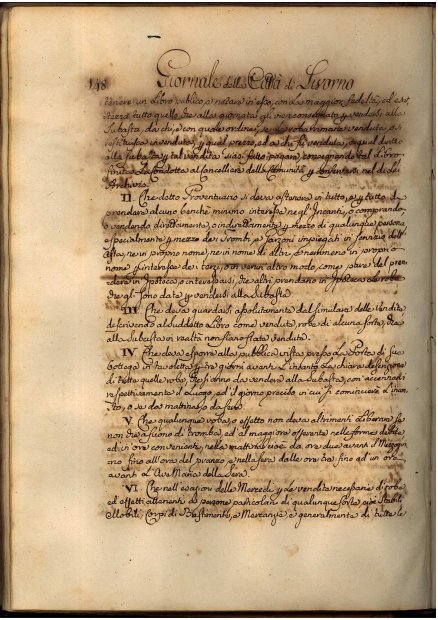 148 Giornale della Città di Livorno
tenere un Libro publico, e notare in esso, con la maggior fedeltà, ed
tutto quello che alla giornata gli vien consegnato p vendersi alla
Subasta, da chi, e con quale ordine, se la roba rimane venduta, o si
restituisce invenduta, p qual prezzo, ed a chi fù venduta, e qual diritto
alla Subasta p tal vendita sia stato pagato, consegnando tal Libro
finita la Condotta al Cancelliere della Comunità p conservarsi nel di lei
Archivio.
II. Che detto Proventuario si deva astenere in tutto, e p tutto di
prendere alcuno benchè minimo interesse negl'Incanti, o comprando,
o vendendo direttamente, o indirettamente p mezzo di qualunque persona
e specialmente p mezzo de' ministri, e garzoni impiegati in servizio dell'
Asta, ne in proprio nome, ne in nome di altri, e nemmeno in proprio
nome p interesse de terzi, o in verun altro modo, come pure del pren
dere in Ipoteca, o interessarsi, che altri prendano in Ipoteca le robe
che gli sono date p vendersi alla Subasta.
III. Che deva guardarsi assolutamente dal simulare delle Vendite
descrivendo al suddetto Libro come venduta, roba di alcuna sorte, che
alla Subasta in realtà non siano state vendute.
IV. Che deva esporre alla pubblica vista presso la Porta di sua
bottega in tavoletta giorni avanti l'Incanto la chiara descrizione
di tutte quelle robe, che si anno da vendere alla Subasta, con accennarvi
respettivamente il Luogo, ed il giorno preciso in cui si comincierà l'incan
to, o se da mattina, o da sera.
V. Che qualunque roba, o effetto non deva altrimenti liberarsi se
non che a suono di tromba, ed al maggiore offerente nelle forme solite
ed in ore convenienti, nella mattina cioè da ore due avanti il Mezzogior
no fino all'ora del pranzo, e nella sera dalle ore tre fino ad un ora
avanti l'Ave Maria della Sera.
VI. Che nell'esazioni delle Mercedi p le vendite necessarie di robe
ed effetti attenenti a persone particolari di qualunque sorte, cioè Stabili
Mobili, Corpi di Bastimento, e Mercanzie, e generalmente di tutte le